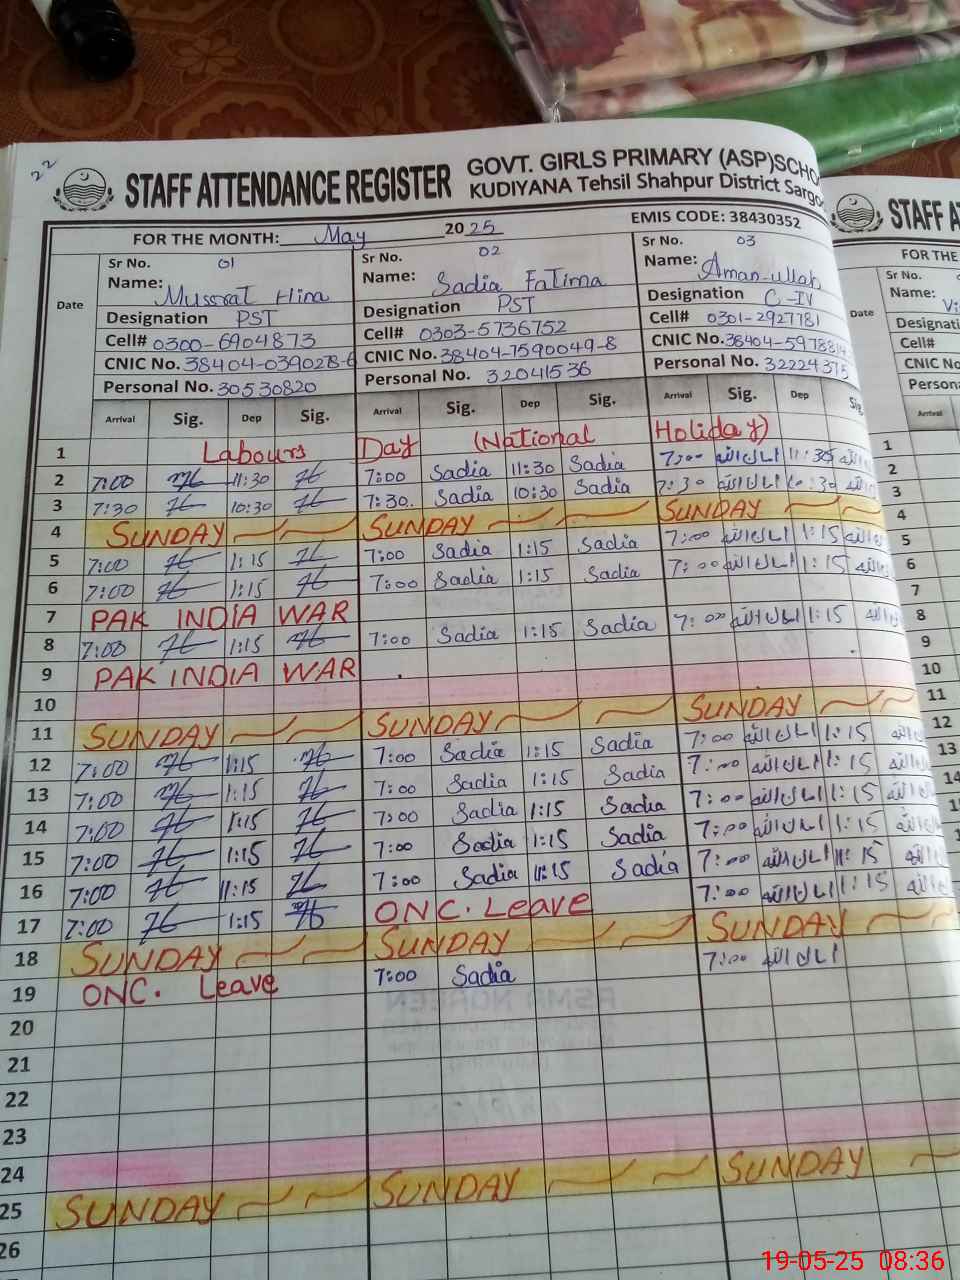 22
STAFF ATTENDANCE REGISTER GOVT. GIRLS PRIMARY (ASP)SCHO
KUDIYANA Tehsil Shahpur District Sargo
STAFF AT
FOR THE MONTH: May 2025 EMIS CODE: 38430352
FOR THE
Date Sr No. 01 Sr No. 02 Sr No. 03
Name: Mussrat Hina Name: Sadia Fatima Name: Aman-ullah
Designation PST Designation PST Designation C-IV
Cell# 0300-6904873 Cell# 0303-5736752 Cell# 0301-2927781
CNIC No. 38404-0390278-6 CNIC No. 38404-7590049-8 CNIC No. 38404-59788
Personal No. 30530820 Personal No. 32041536 Personal No. 32224375
Date Sr No.
Name: Vi
Designati
Cell#
CNIC No.
Persona
Arrival Sig. Dep Sig. Arrival Sig. Dep Sig. Arrival Sig. Dep Sig.
Arrival
1 Labours Day (National Holiday) 1
2 7:00 11:30 7:00 Sadia 11:30 Sadia 7:00 امان اللہ 11:30 2
3 7:30 10:30 7:30 Sadia 10:30 Sadia 7:30 امان اللہ 10:30 3
4 SUNDAY SUNDAY SUNDAY 4
5 7:00 1:15 7:00 Sadia 1:15 Sadia 7:00 امان اللہ 1:15 5
6 7:00 1:15 7:00 Sadia 1:15 Sadia 7:00 امان اللہ 1:15 6
7 PAK INDIA WAR 7
8 7:00 1:15 7:00 Sadia 1:15 Sadia 7:00 امان اللہ 1:15 8
9 PAK INDIA WAR 9
10 10
11 SUNDAY SUNDAY SUNDAY 11
12 7:00 1:15 7:00 Sadia 1:15 Sadia 7:00 امان اللہ 1:15 12
13 7:00 1:15 7:00 Sadia 1:15 Sadia 7:00 امان اللہ 1:15 13
14 7:00 1:15 7:00 Sadia 1:15 Sadia 7:00 امان اللہ 1:15 14
15 7:00 1:15 7:00 Sadia 1:15 Sadia 7:00 امان اللہ 1:15
16 7:00 11:15 7:00 Sadia 11:15 Sadia 7:00 امان اللہ 11:15
17 7:00 1:15 ONC. Leave 7:00 امان اللہ 1:15
18 SUNDAY SUNDAY SUNDAY
19 ONC. Leave 7:00 Sadia 7:00 امان اللہ
20
21
22
23
24
25 SUNDAY SUNDAY SUNDAY
26
19-05-25 08:36